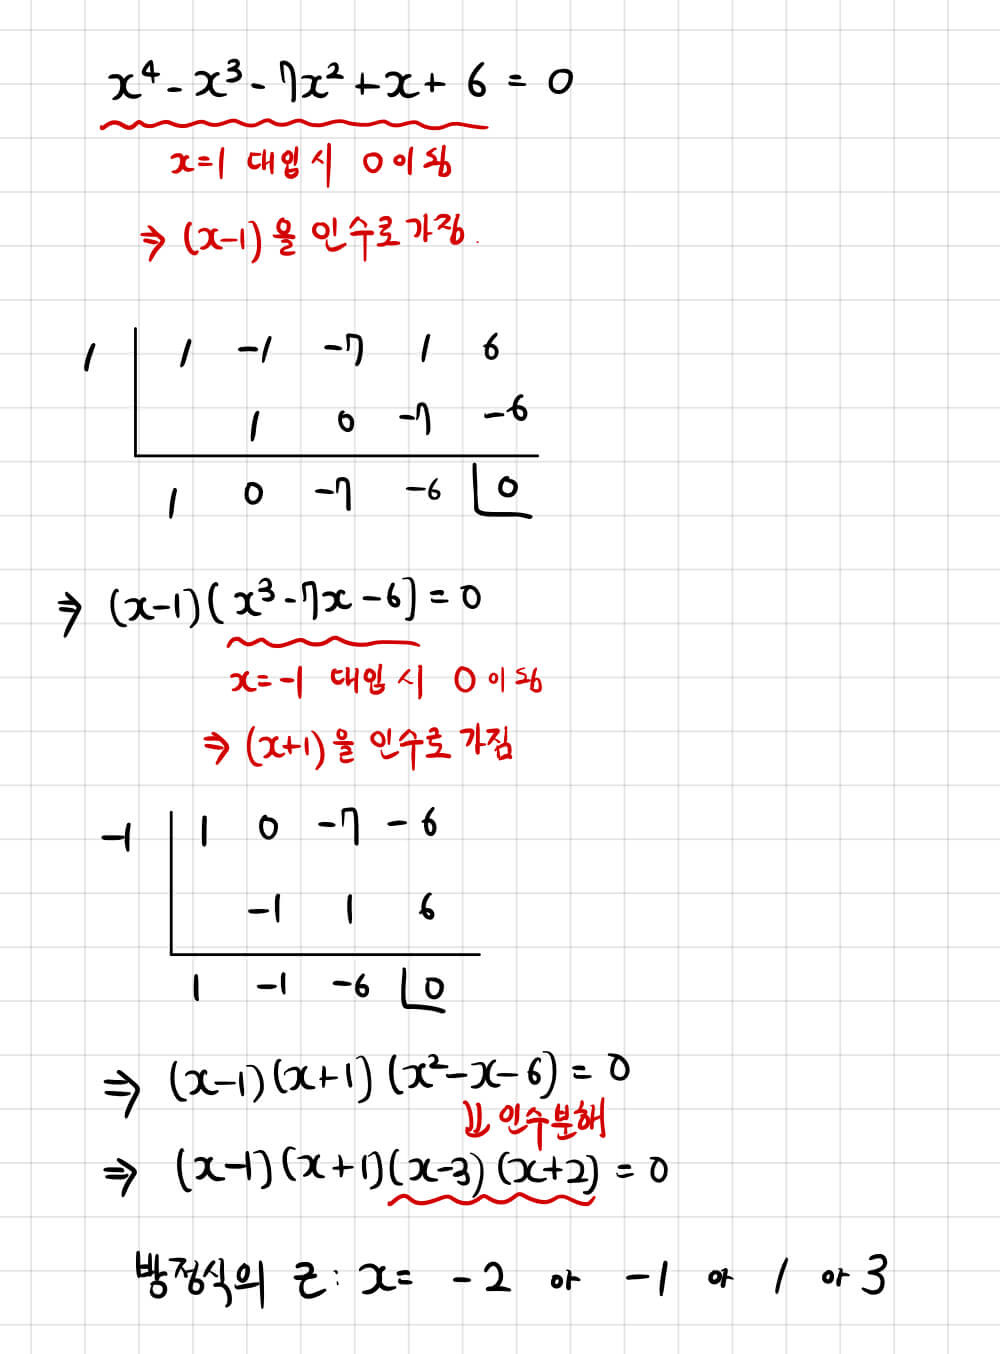 x⁴ - x³ - 7x² + x + 6 = 0
x=1 대입시 0이 됨
⇒ (x-1)을 인수로 가짐.
1 | 1 -1 -7 1 6
1 0 -7 -6
1 0 -7 -6 | 0
⇒ (x-1)(x³-7x-6) = 0
x=-1 대입시 0이 됨
⇒ (x+1)을 인수로 가짐
-1 | 1 0 -7 -6
-1 1 6
1 -1 -6 | 0
⇒ (x-1)(x+1)(x²-x-6) = 0
⇓ 인수분해
⇒ (x-1)(x+1)(x-3)(x+2) = 0
방정식의 근: x = -2 or -1 or 1 or 3